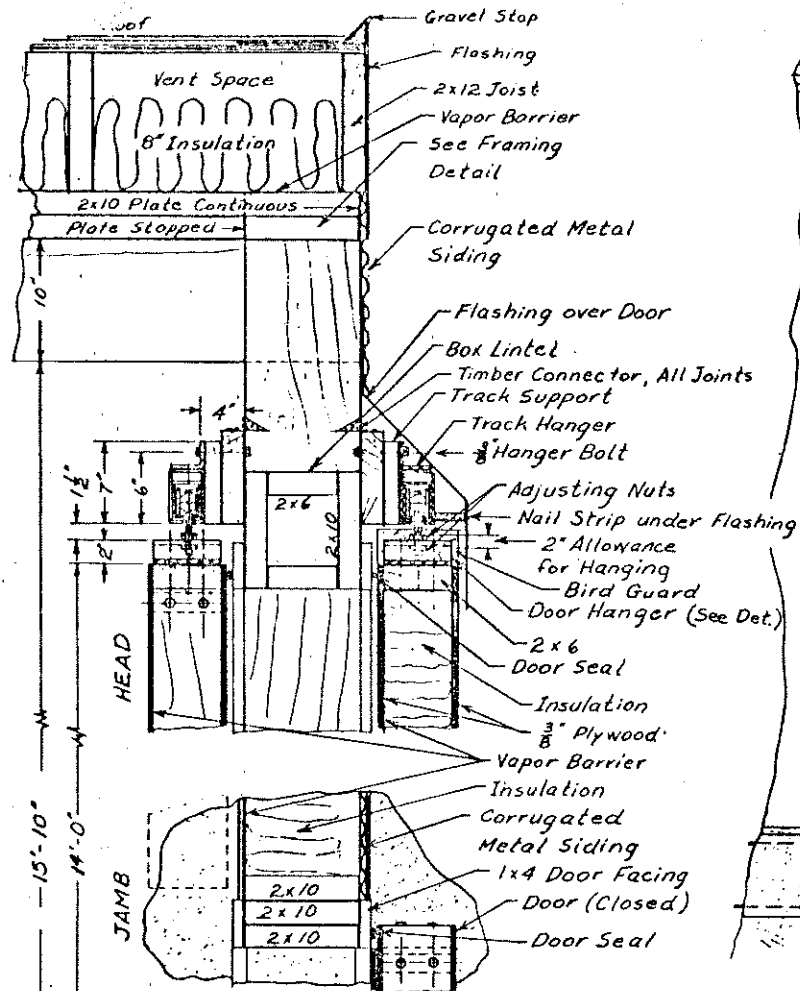 Gravel Stop
Flashing
Vent Space
2x12 Joist
Vapor Barrier
8" Insulation
See Framing
Detail
2x10 Plate Continuous
Plate Stopped
Corrugated Metal
Siding
10"
Flashing over Door
Box Lintel
Timber Connector, All Joints
4"
Track Support
Track Hanger
Hanger Bolt
1 1/2"
7"
6"
Adjusting Nuts
2x6
2x10
Nail Strip under Flashing
2"
2" Allowance
for Hanging
Bird Guard
Door Hanger (See Det.)
2x6
Door Seal
HEAD
Insulation
3/8" Plywood
Vapor Barrier
Insulation
Corrugated
Metal Siding
15'-10"
14'-0"
JAMB
2x10
2x10
2x10
1x4 Door Facing
Door (Closed)
Door Seal